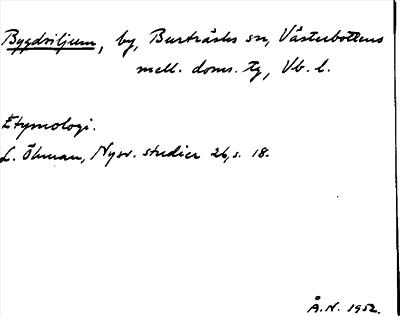 Bygdsiljum, by, Burträsks sn, Västerbottens
mell. doms. tg, Vb. l.
Etymologi.
L. Öhman, Nysv. studier 26, s. 18.
Å.N. 1952.